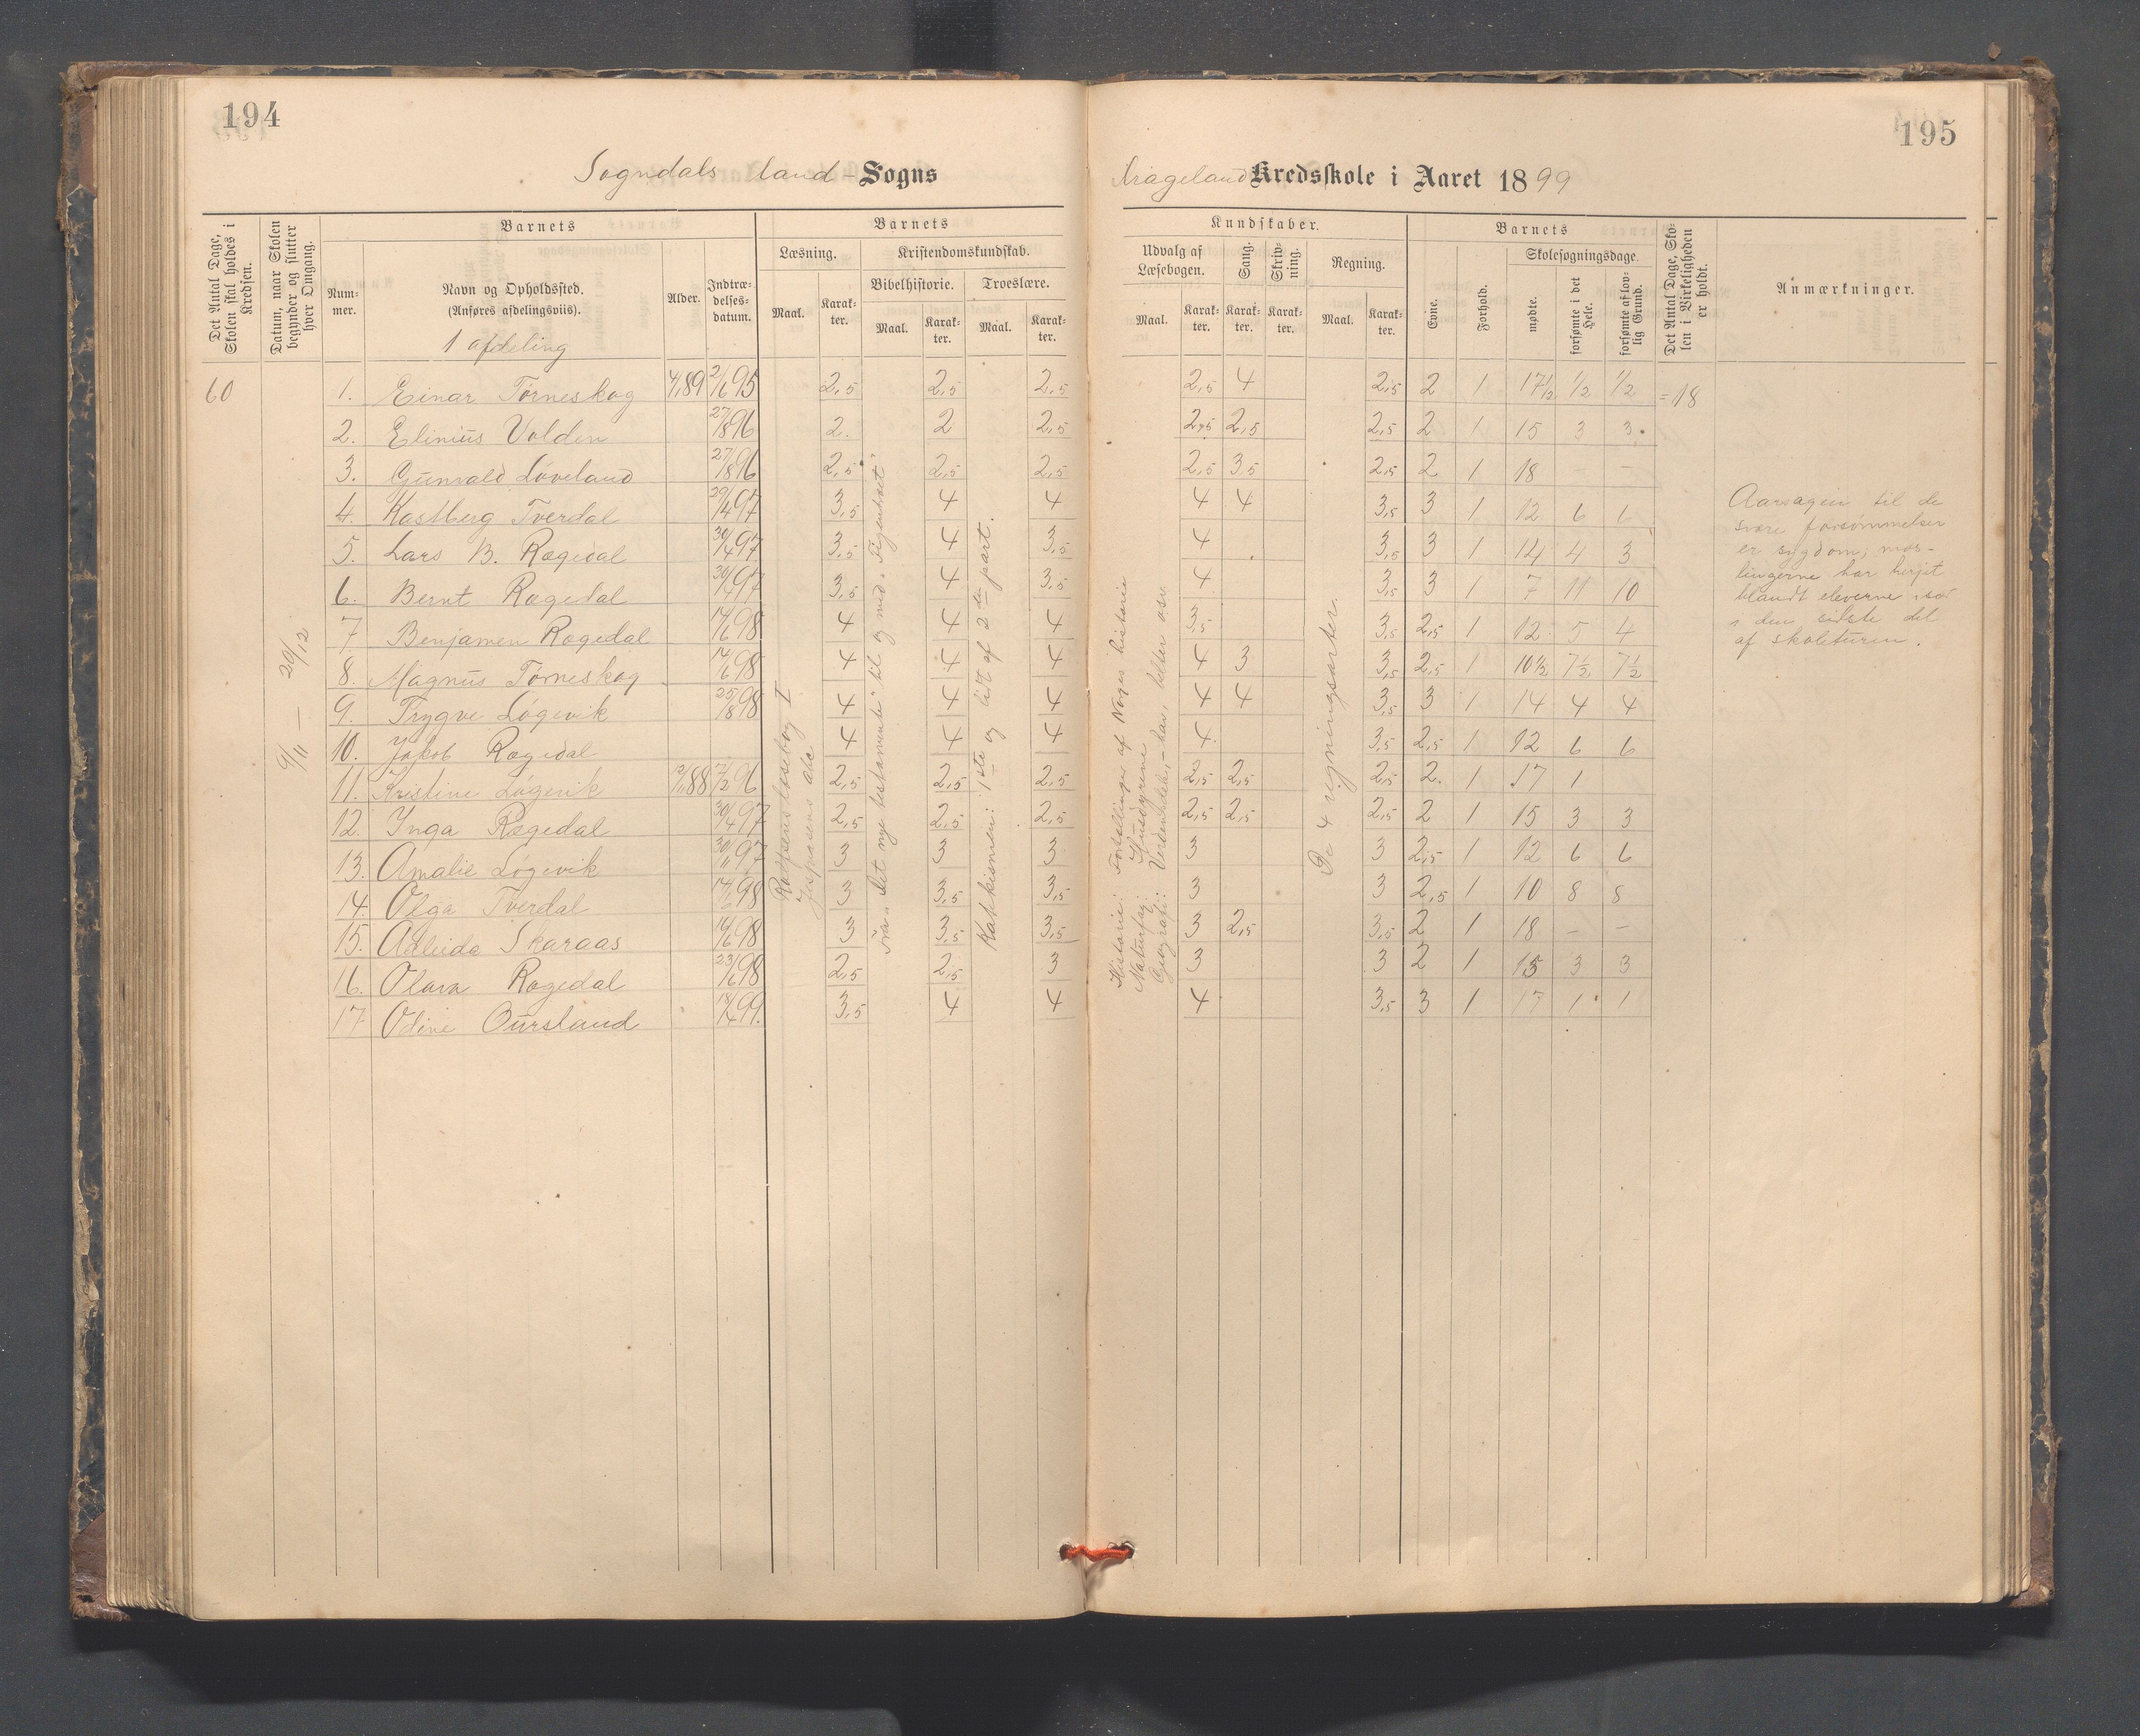 194
195
Sogndals land - Sogns
Krageland Kredsskole i Aaret 1899
Det Antal Dage, Skolen skal holdes i Kredsen.
Datum, naar Skolen begynder og slutter hver Omgang.
Barnets
Num-
mer.
Navn og Opholdssted.
(Anføres afdelingsviis).
1 afdeling
Alder.
Indtræ-
delses-
datum.
Barnets
Læsning.
Maal.
Karak-
ter.
Kristendomskundskab.
Bibelhistorie.
Maal.
Karak-
ter.
Troeslære.
Maal.
Karak-
ter.
Kundskaber.
Udvalg af
Læsebogen.
Maal.
Karak-
ter.
Sang.
Karak-
ter.
Skriv-
ning.
Karak-
ter.
Regning.
Maal.
Karak-
ter.
Barnets
Evne.
Forhold.
Skolesøgningsdage.
mødte.
forsømte i det Hele.
forsømte af lov-
lig Grund.
Det Antal Dage, Sko-
len i Virkeligheden
er holdt.
Anmærkninger.
60
9/11 — 20/12
1. Einar Tørneskog 4/1 89 2/6 95 2,5 2,5 2,5 2,5 4 2,5 2 1 17 1/2 1/2 1/2 = 18
2. Elinius Volden 27/8 96 2. 2 2,5 2,5 2,5 2,5 2 1 15 3 3
3. Gunvald Løveland 27/8 96 2,5 2,5 2,5 2,5 3,5 2,5 2 1 18 – –
4. Kastberg Tverdal 29/4 97 3,5 4 4 4 4 3,5 3 1 12 6 6
5. Lars B. Rægedal 30/4 97 3,5 4 3,5 4 3,5 3 1 14 4 3
6. Bernt Rægedal 30/4 97 3,5 4 3,5 4 3,5 3 1 7 11 10
7. Benjamen Rægedal 14/6 98 4 4 4 3,5 3,5 2,5 1 12 5 4
8. Magnus Tørneskog 14/6 98 4 4 4 4 3 3,5 2,5 1 10 1/2 7 1/2 7 1/2
9. Trygve Løgevik 25/8 98 4 4 4 4 4 3,5 3 1 14 4 4
10. Jakob Rægedal 4 4 4 4 3,5 2,5 1 12 6 6
11. Kristine Løgevik 88 96 2,5 2,5 2,5 2,5 2,5 2,5 2. 1 17 1
12. Inga Rægedal 30/4 97 2,5 2,5 2,5 2,5 2,5 2,5 2 1 15 3 3
13. Amalie Løgevik 97 3 3 3 3 3 2,5 1 12 6 6
14. Olga Tverdal 14/6 98 3 3,5 3,5 3 3 2,5 1 10 8 8
15. Adleida Skaraas 14/6 98 3 3,5 3,5 3 2,5 3,5 2 1 18 – –
16. Olava Rægedal 23/6 98 2,5 2,5 3 3 3 2 1 15 3 3
17 Odine Oursland 18/4 99. 3,5 4 4 4 3,5 3 1 17 1 1
Rolfsens læsebog I
Jespersens abc
Fra „Det nye testamente" til og med „Figentræet"
Katekismen: 1ste og lidt af 2den part.
Historie: Fortællinger af Norges historie
Naturfag: Husdyrene
Geografi: Verdensdele, – hav,
De 4 regningsarter.
Aarsagen til de
svære forsømmelser
er sygdom; mæs-
lingerne har herjet
blandt eleverne især
i den sidste del
af skoleturen.